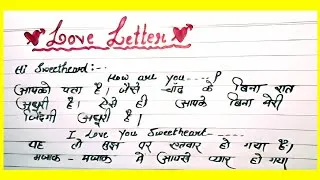 Love Letter
Hi Sweetheart:--
How are you ----!
आपको पता है। जैसे चाँद के बिना रात
अधुरी है। ऐसे ही आपके बिना मेरी
जिंदगी अधुरी है।
I Love You Sweetheart ----
यह तो मुझ पर एतबार हो गया है।
मजाक - मजाक में आपसे प्यार हो गया